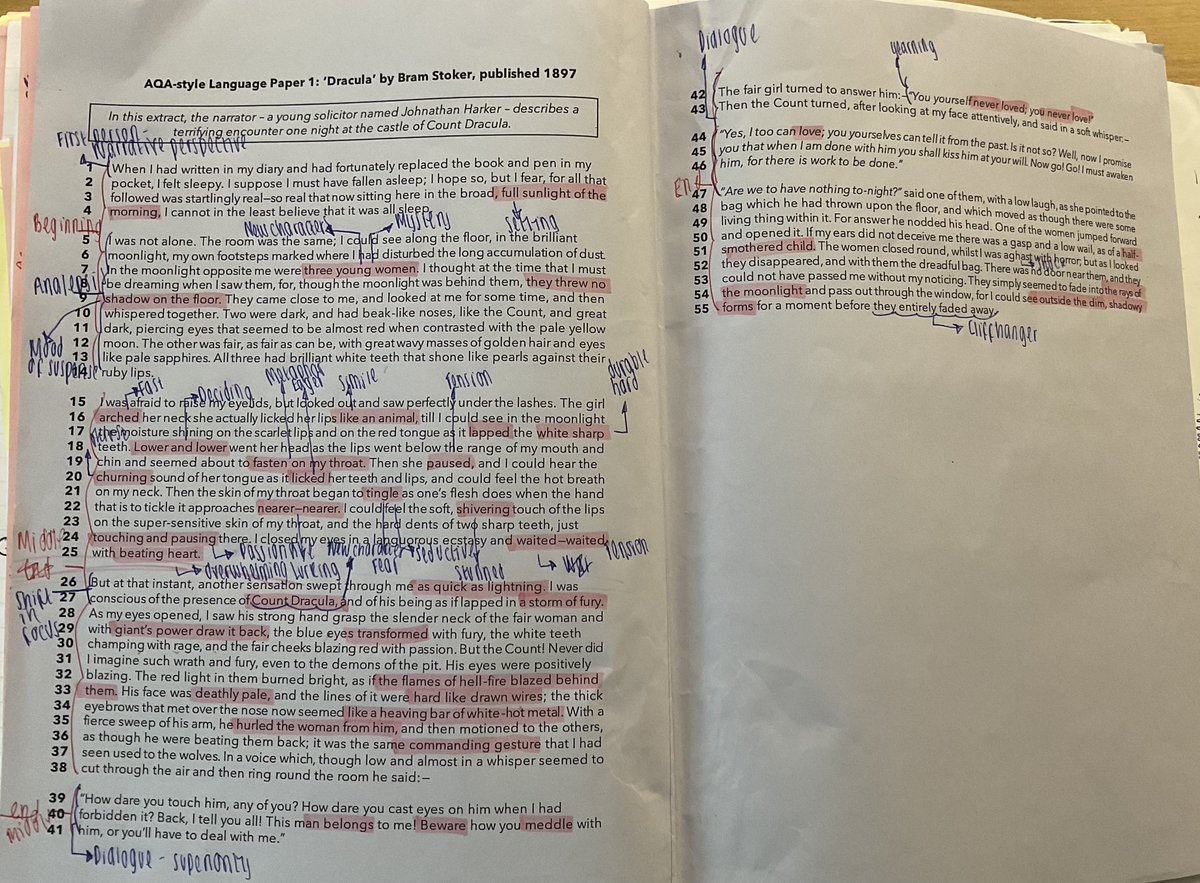 AQA-style Language Paper 1: 'Dracula' by Bram Stoker, published 1897
In this extract, the narrator – a young solicitor named Johnathan Harker – describes a
terrifying encounter one night at the castle of Count Dracula.
First person -
narrative perspective
1 When I had written in my diary and had fortunately replaced the book and pen in my
2 pocket, I felt sleepy. I suppose I must have fallen asleep; I hope so, but I fear, for all that
3 followed was startlingly real—so real that now sitting here in the broad, full sunlight of the
4 morning, I cannot in the least believe that it was all sleep.
Beginning
New characters
Mystery
setting
5 I was not alone. The room was the same; I could see along the floor, in the brilliant
6 moonlight, my own footsteps marked where I had disturbed the long accumulation of dust.
7 In the moonlight opposite me were three young women. I thought at the time that I must
8 be dreaming when I saw them, for, though the moonlight was behind them, they threw no
9 shadow on the floor. They came close to me, and looked at me for some time, and then
10 whispered together. Two were dark, and had beak-like noses, like the Count, and great
11 dark, piercing eyes that seemed to be almost red when contrasted with the pale yellow
12 moon. The other was fair, as fair as can be, with great wavy masses of golden hair and eyes
13 like pale sapphires. All three had brilliant white teeth that shone like pearls against their
14 ruby lips.
Mood
of suspense
Fast
Deciding
Simile
Tension
durable
hard
15 I was afraid to raise my eyelids, but looked out and saw perfectly under the lashes. The girl
16 arched her neck she actually licked her lips like an animal, till I could see in the moonlight
17 the moisture shining on the scarlet lips and on the red tongue as it lapped the white sharp
18 teeth. Lower and lower went her head as the lips went below the range of my mouth and
19 chin and seemed about to fasten on my throat. Then she paused, and I could hear the
20 churning sound of her tongue as it licked her teeth and lips, and could feel the hot breath
21 on my neck. Then the skin of my throat began to tingle as one's flesh does when the hand
22 that is to tickle it approaches nearer—nearer. I could feel the soft, shivering touch of the lips
23 on the super-sensitive skin of my throat, and the hard dents of two sharp teeth, just
24 touching and pausing there. I closed my eyes in a languorous ecstasy and waited—waited
25 with beating heart.
Middle
Passionate
New character
fear
seductive
Tension
overwhelming lurking
stunned
26 But at that instant, another sensation swept through me as quick as lightning. I was
27 conscious of the presence of Count Dracula, and of his being as if lapped in a storm of fury.
28 As my eyes opened, I saw his strong hand grasp the slender neck of the fair woman and
29 with giant's power draw it back, the blue eyes transformed with fury, the white teeth
30 champing with rage, and the fair cheeks blazing red with passion. But the Count! Never did
31 I imagine such wrath and fury, even to the demons of the pit. His eyes were positively
32 blazing. The red light in them burned bright, as if the flames of hell-fire blazed behind
33 them. His face was deathly pale, and the lines of it were hard like drawn wires; the thick
34 eyebrows that met over the nose now seemed like a heaving bar of white-hot metal. With a
35 fierce sweep of his arm, he hurled the woman from him, and then motioned to the others,
36 as though he were beating them back; it was the same commanding gesture that I had
37 seen used to the wolves. In a voice which, though low and almost in a whisper seemed to
38 cut through the air and then ring round the room he said:–
Shift
in
focus
39 "How dare you touch him, any of you? How dare you cast eyes on him when I had
40 forbidden it? Back, I tell you all! This man belongs to me! Beware how you meddle with
41 him, or you'll have to deal with me."
end
middle
Dialogue - superiority
Dialogue
yearning
42 The fair girl turned to answer him:– "You yourself never loved; you never love!"
43 Then the Count turned, after looking at my face attentively, and said in a soft whisper:–
44 "Yes, I too can love; you yourselves can tell it from the past. Is it not so? Well, now I promise
45 you that when I am done with him you shall kiss him at your will. Now go! Go! I must awaken
46 him, for there is work to be done."
End
47 "Are we to have nothing to-night?" said one of them, with a low laugh, as she pointed to the
48 bag which he had thrown upon the floor, and which moved as though there were some
49 living thing within it. For answer he nodded his head. One of the women jumped forward
50 and opened it. If my ears did not deceive me there was a gasp and a low wail, as of a half-
51 smothered child. The women closed round, whilst I was aghast with horror; but as I looked
52 they disappeared, and with them the dreadful bag. There was no door near them, and they
53 could not have passed me without my noticing. They simply seemed to fade into the rays of
54 the moonlight and pass out through the window, for I could see outside the dim, shadowy
55 forms for a moment before they entirely faded away.
Cliffhanger